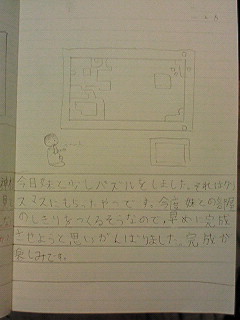 今日妹と少しパズルをしました。それはクリ
スマスにもらったやつです。今度妹との部屋
のしきりをつくるそうなので、早めに完成
させようと思いがんばりました。完成が
楽しみです。